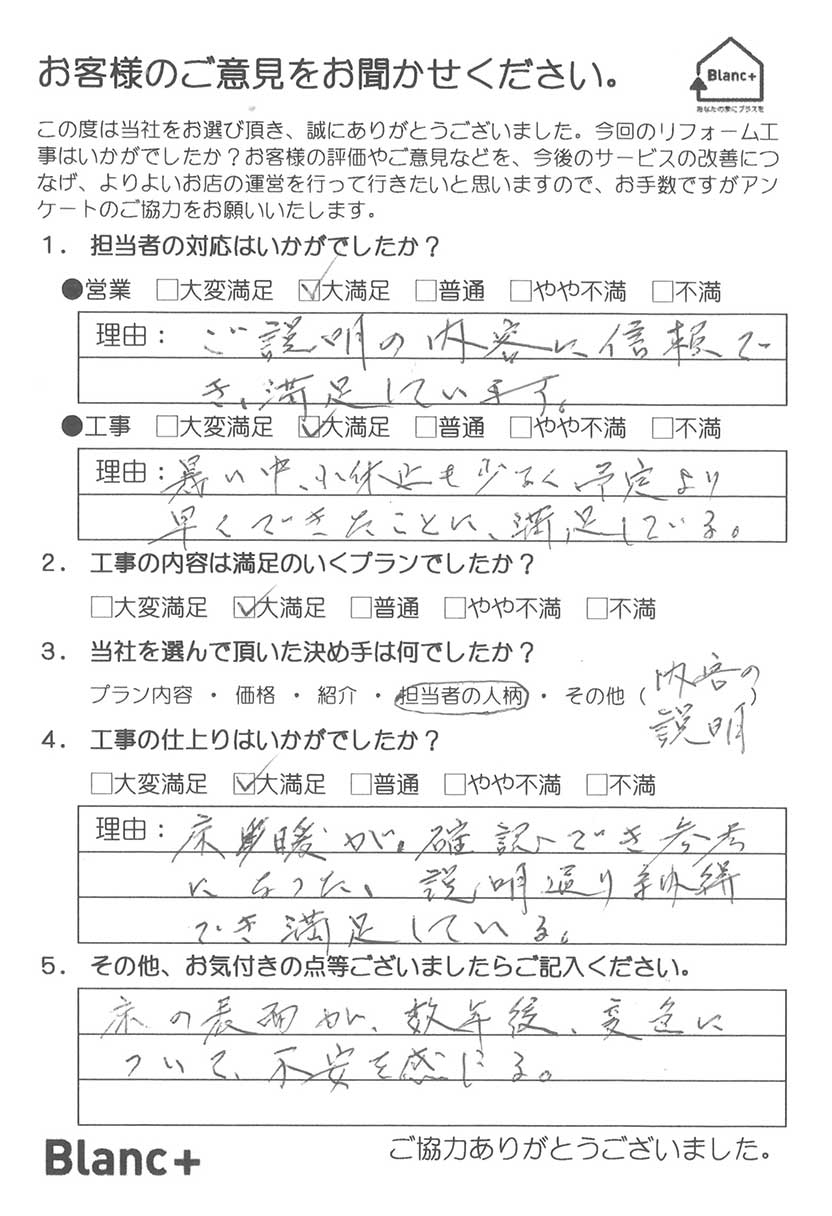 お客様のご意見をお聞かせください。
Blanc+
あなたの家にプラスを
この度は当社をお選び頂き、誠にありがとうございました。今回のリフォーム工
事はいかがでしたか?お客様の評価やご意見などを、今後のサービスの改善につ
なげ、よりよいお店の運営を行って行きたいと思いますので、お手数ですがアン
ケートのご協力をお願いいたします。
1. 担当者の対応はいかがでしたか?
●営業 □大変満足 ☑大満足 □普通 □やや不満 □不満
理由: ご説明の内容に信頼で
き、満足しています。
●工事 □大変満足 ☑大満足 □普通 □やや不満 □不満
理由: 暑い中、小休止も少なく予定より
早くできたことに、満足している。
2. 工事の内容は満足のいくプランでしたか?
□大変満足 ☑大満足 □普通 □やや不満 □不満
3. 当社を選んで頂いた決め手は何でしたか?
プラン内容 ・ 価格 ・ 紹介 ・ 担当者の人柄 ・ その他 (内容の
説明)
4. 工事の仕上りはいかがでしたか?
□大変満足 ☑大満足 □普通 □やや不満 □不満
理由: 床暖が。確認でき参考
になった、説明通り納得
でき満足している。
5. その他、お気付きの点等ございましたらご記入ください。
床の表面が、数年後、変色に
ついて、不安を感じる。
Blanc+
ご協力ありがとうございました。